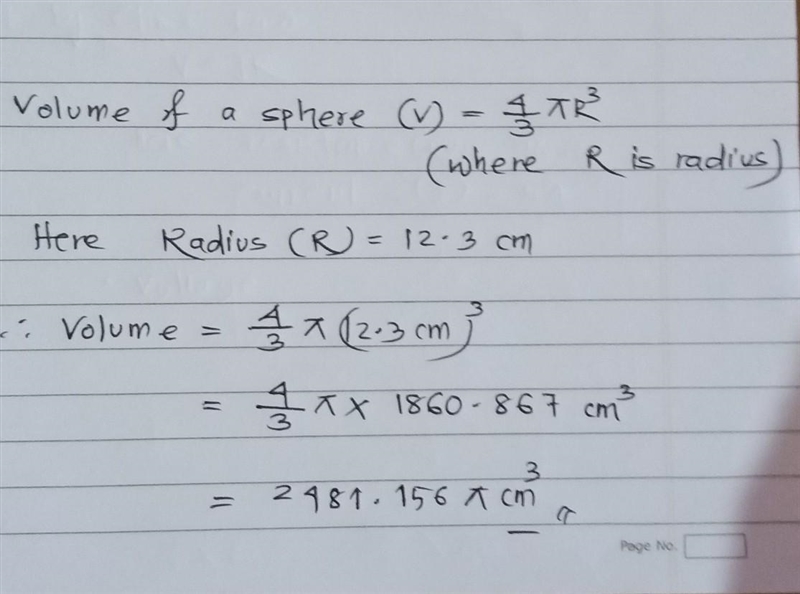 Volume of a sphere (V) = 4/3 πR³
(where R is radius)
Here Radius (R) = 12.3 cm
∴ Volume = 4/3 π (12.3 cm)³
= 4/3 π × 1860.867 cm³
= 2481.156 π cm³
Page No.